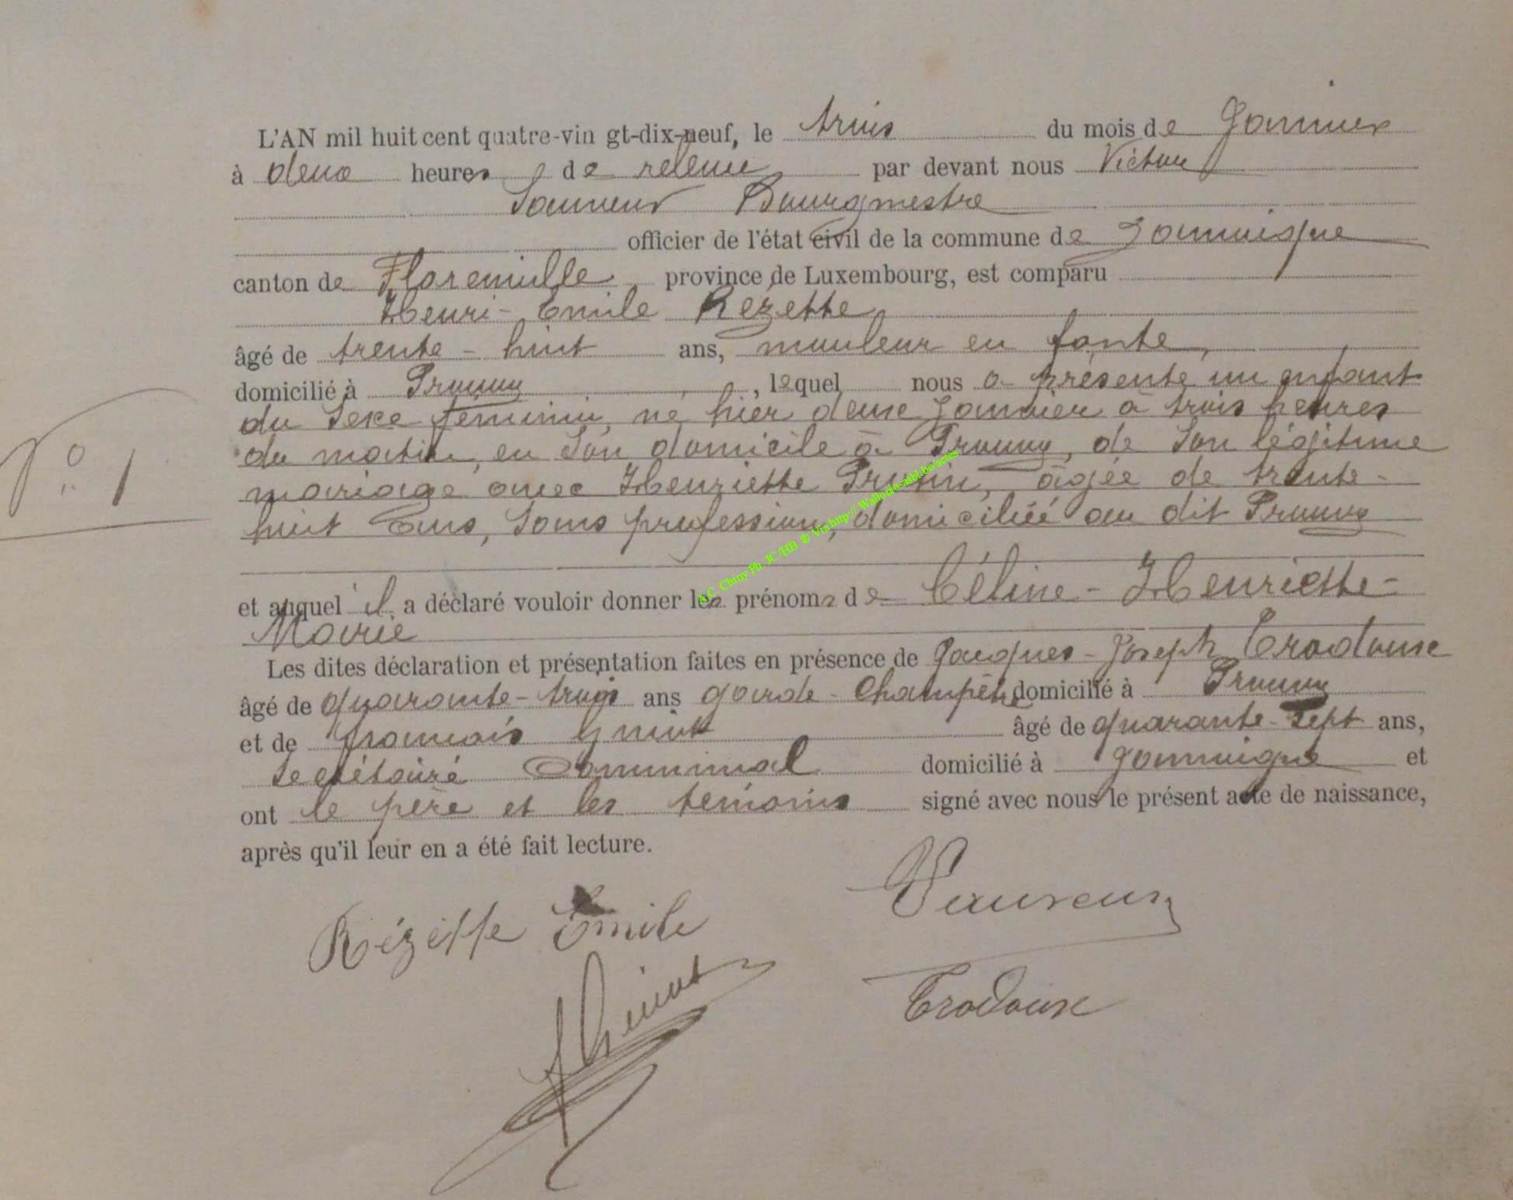 L'AN mil huit cent quatre-vingt-dix-neuf, le trois du mois de Janvier
à deux heures de relevée par devant nous Victor
Sauveur Bourgmestre
officier de l'état civil de la commune de Jamoigne
canton de Florenville province de Luxembourg, est comparu
Henri-Emile Rézette
âgé de trente-huit ans, mouleur en fonte,
domicilié à Prouvy, lequel nous a présenté un enfant
du sexe féminin, né hier deux Janvier à trois heures
du matin, en son domicile à Prouvy, de son légitime
N° 1
mariage avec Henriette âgée de trente-
huit ans, sans profession, domiciliée au dit Prouvy
et auquel il a déclaré vouloir donner les prénoms de Céline-Henriette-
Marie
Les dites déclaration et présentation faites en présence de Jacques-Joseph Trodoux
âgé de quarante-trois ans garde-champêtre domicilié à Prouvy
et de françois âgé de quarante-sept ans,
secrétaire communal domicilié à Jamoigne et
ont le père et les témoins signé avec nous le présent acte de naissance,
après qu'il leur en a été fait lecture.
Rézette Emile Sauveur
Trodoux